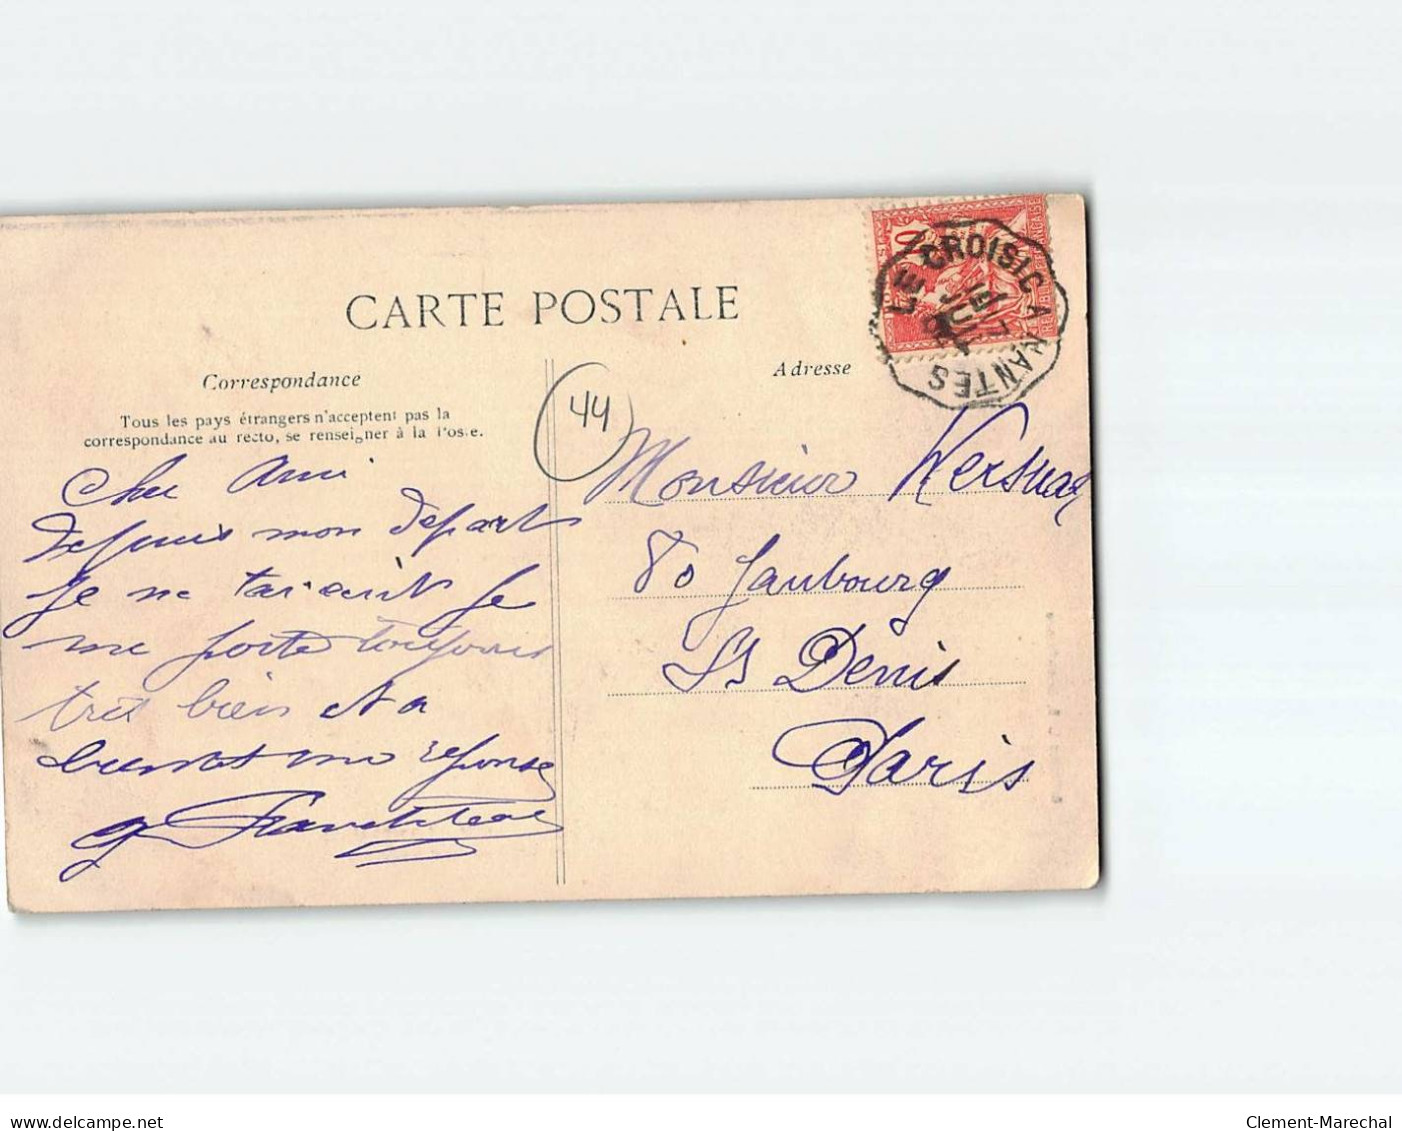 CARTE POSTALE
Correspondance
Tous les pays étrangers n'acceptent pas la
correspondance au recto, se renseigner à la Poste.
Cher Ami
depuis mon départ
je ne t'ai écrit je
me porte toujours
très bien et a
bientot une réponse
44
Adresse
LE CROISIC A NANTES
10
Monsieur
80 faubourg
St Denis
Paris
delcampe.net
Clement-Marechal